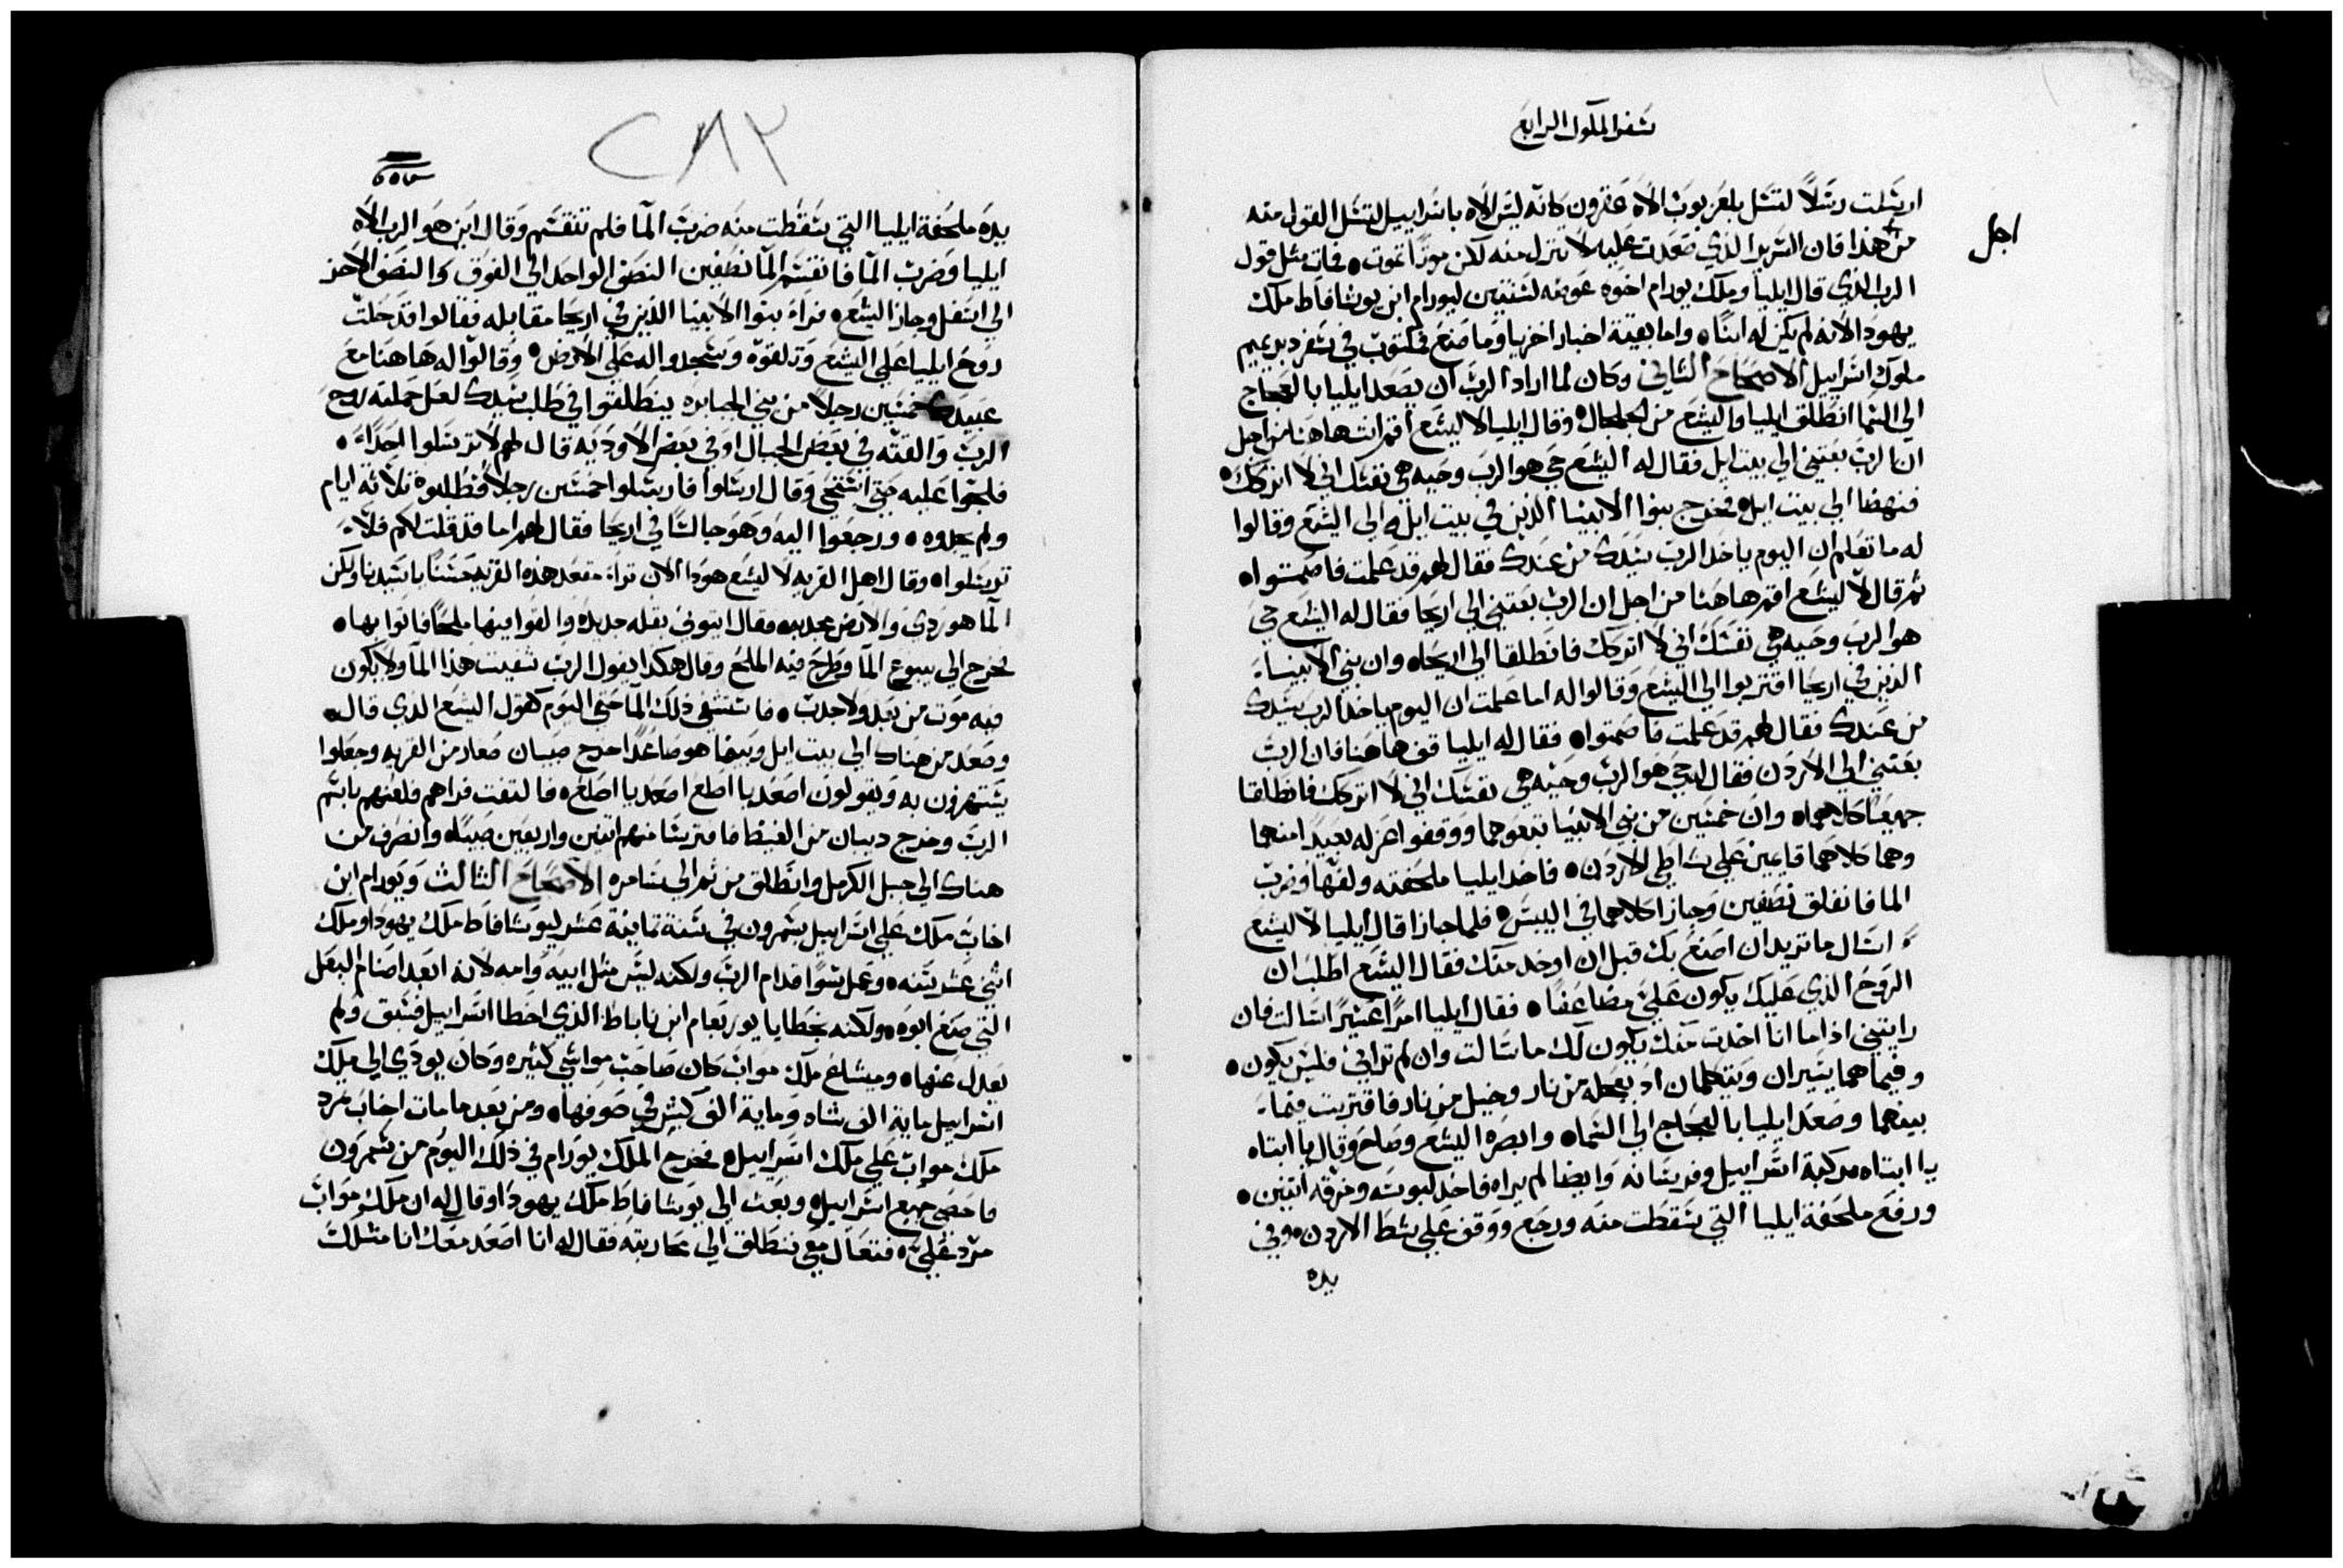 سفر الملوك الرابع
ارسلت رسلاً لتسل بلعزبوب الاه عقرون كانه ليس الاه باسراييل لتسل القول منه
اجل
من هذا فان السرير الذي صعدت عليه لا تنزل منه لكن موتاً تموت ٠ فمات مثل قول
الرب الذي قال ايليا وملك يورام اخوه عوضه لسنتين ليورام ابن يوشافاط ملك
يهودا لانه لم يكن له ابناً ٠ واما بقية اخبار اخزيا وما صنع مكتوب في سفر دبريميم
ملوك اسراييل الاصحاح الثاني وكان لما اراد الرب ان يصعد ايليا بالعجاج
الي السما انطلق ايليا واليشع من الجلجال ٠ وقال ايليا لاليشع اقم انت هاهنا من اجل
ان الرب بعتني الي بيت ايل فقال له اليشع حي هو الرب وحيه هي نفسك اني لا اتركك ٠
فنهضا الي بيت ايل ٠ فخرج بنوا الانبيا الذين في بيت ايل الي اليشع وقالوا
له ما تعلم ان اليوم ياخذ الرب سيدك من عندك فقال لهم قد علمت فاصمتوا ٠
ثم قال لاليشع اقم هاهنا من اجل ان الرب بعتني الي اريحا فقال له اليشع حي
هو الرب وحيه هي نفسك اني لا اتركك فانطلقا الي اريحا ٠ وان بني الانبيا
الذين في اريحا اقتربوا الي اليشع وقالوا له اما علمت ان اليوم ياخذ الرب سيدك
من عندك فقال لهم قد علمت فاصمتوا ٠ فقال له ايليا قف هاهنا فان الرب
بعتني الي الاردن فقال له حي هو الرب وحيه هي نفسك اني لا اتركك فانطلقا
جميعاً كلاهما ٠ وان خمسين من بني الانبيا تبعوهما ووقفوا عزله بعيداً منهما
وهما كلاهما قايمين علي شاطي الاردن ٠ فاخد ايليا ملحفته ولفها وضرب
الما فانفلق نصفين وجازا كلاهما في اليبس ٠ فلما جازا قال ايليا لاليشع
اسال ما تريد ان اصنع بك قبل ان اوخد منك فقال اليشع اطلب ان
الروح الذي عليك يكون علي مضاعفاً ٠ فقال ايليا امراً عسيراً سالت فان
رايتني اذا ما انا اخدت منك يكون لك ما سالت وان لم تراني فليس يكون ٠
وفيما هما يسيران ويتكلمان اد بعجله من نار وخيل من نار فاقتربت فيما
بينهما وصعد ايليا بالعجاج الي السما ٠ وابصره اليشع وصاح وقال يا ابتاه
يا ابتاه مركبة اسراييل وفرسانه وايضا لم يراه فاخد لبوسه وخرقه اتنين ٠
ورفع ملحفة ايليا التي سقطت منه ورجع ووقف علي شط الاردن ٠ وفي
يده
٢٨٢
يده ملحفة ايليا التي سقطت منه ضرب الما فلم تنقسم وقال اين هو الرب الاه
ايليا وضرب الما فانقسم الما نصفين النصف الواحد الي الفوق والنصف الاخر
الي اسفل وجاز اليشع ٠ فراء بنوا الانبيا الذين في اريحا مقابله فقالوا قد حلت
روح ايليا علي اليشع وتلقوه وسجدوا له علي الارض ٠ وقالوا له هاهنا مع
عبيدك خمسين رجلا من بني الجبابره ينطلقوا في طلب سيدك لعل حملته روح
الرب والقته في بعض الجبال او في بعض الاوديه قال لهم لا ترسلوا احداً ٠
فلجوا عليه حتي استحي وقال ارسلوا فارسلوا خمسين رجلاً فطلبوه تلاتة ايام
ولم يجدوه ٠ ورجعوا اليه وهو جالساً في اريحا فقال لهم اما قد قلت لكم فلا
ترسلوا ٠ وقال اهل القريه لاليشع هودا الان تراء مقعد هذه القريه حسناً يا سيدنا ولكن
الما هو ردي والارض مجدبه فقال ايتوني بقله جديده والقوا فيها ملحاً فاتوا بها ٠
فخرج الي ينبوع الما وطرح فيه الملح وقال هكدا يقول الرب شفيت هذا الما ولا يكون
فيه موت من بعد ولا جدب ٠ فاشتفي ذلك الما حتي اليوم كقول اليشع الذي قال ٠
وصعد من هناك الي بيت ايل وبينما هو صاعداً خرج صبيان صغار من القريه وجعلوا
يستهزون به ويقولون اصعد يا اصلع اصعد يا اصلع ٠ فالتفت فراهم فلعنهم باسم
الرب وخرج دبيان من الغيظ فافترسا منهم اتنين واربعين صبياً ٠ وانصرف من
هناك الي جبل الكرمل وانطلق من ثم الي سامره الاصحاح الثالث ويورام ابن
اخاب ملك علي اسراييل بشمرون في سنة تمانية عشر ليوشافاط ملك يهودا وملك
اثني عشر سنه ٠ وعمل سواً قدام الرب ولكنه ليس مثل ابيه وامه لانه ابعد اصنام البعل
التي صنع ابوه ٠ ولكنه بخطايا يوربعام ابن ناباط الذي اخطا اسراييل فسق ولم
يعدل عنها ٠ وميشاع ملك مواب كان صاحب مواشي كثيره وكان يودي الي ملك
اسراييل ماية الف شاه وماية الف كبش في صوفها ٠ ومن بعد ما مات اخاب مرد
ملك مواب علي ملك اسراييل ٠ فخرج الملك يورام في ذلك اليوم من شمرون
فاحصي جميع اسراييل ٠ وبعث الي يوشافاط ملك يهودا وقال له ان ملك مواب
مرد علي ٠ فتعال معي ننطلق الي محاربته فقال له انا اصعد معك انا مثلك